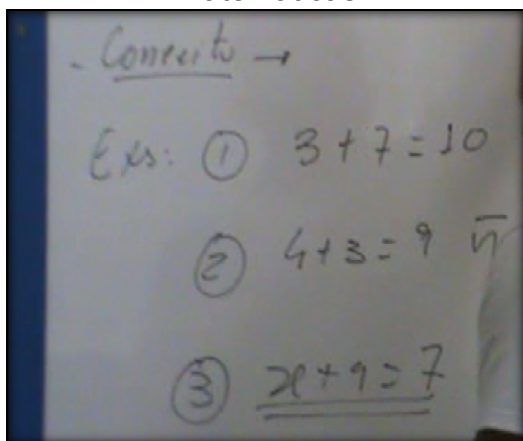 - Conceito →
Exs: ① 3 + 7 = 10
② 4 + 3 = 9
③ x + 9 = 7